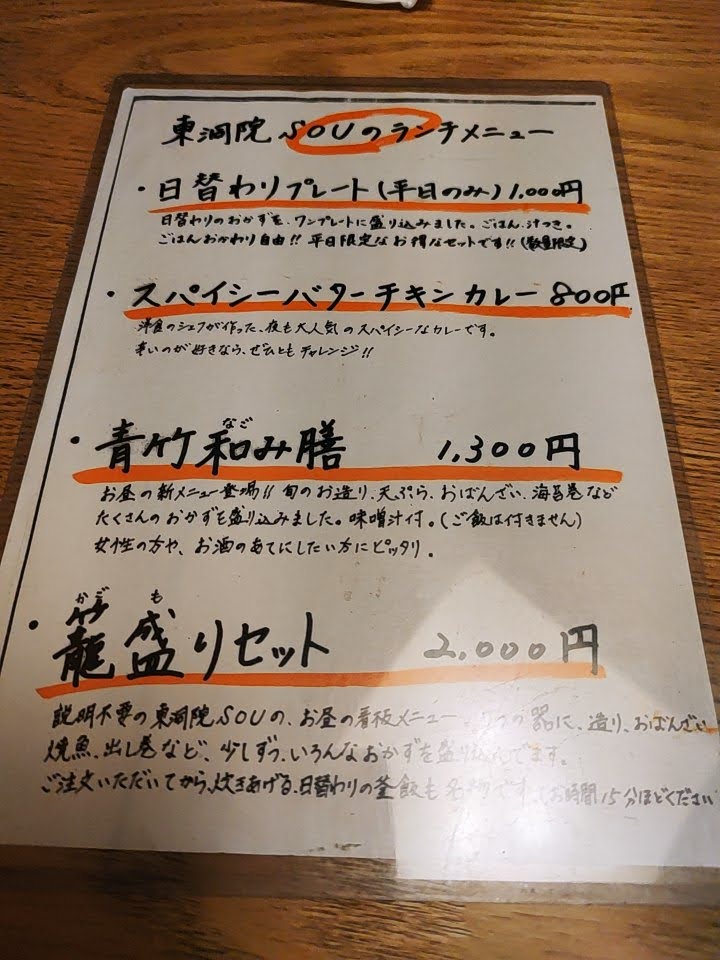 東洞院 SOUのランチメニュー
・日替わりプレート(平日のみ)1,000円
日替わりのおかずを、ワンプレートに盛り込みました。ごはん、汁つき。
ごはんおかわり自由!! 平日限定なお得なセットです!!(数量限定)
・スパイシーバターチキンカレー 800円
洋食のシェフが作った、夜も大人気のスパイシーなカレーです。
辛いのが好きなら、ぜひともチャレンジ!!
なご
・青竹和み膳 1,300円
お昼の新メニュー登場!! 旬のお造り、天ぷら、おばんざい、海苔巻など
たくさんのおかずを盛り込みました。味噌汁付。(ご飯は付きません)
女性の方や、お酒のあてにしたい方にピッタリ。
かご も
・籠盛りセット 2,000円
説明不要の東洞院SOUの、お昼の看板メニュー。7つの器に、造り、おばんざい
焼魚、出し巻など、少しずつ、いろんなおかずを盛り込んでます。
ご注文いただいてから、炊きあげる、日替わりの釜飯も名物です。(お時間15分ほどください